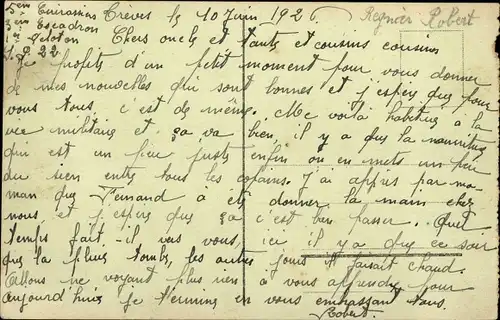 5em Cuirassiers Trèves le 10 Juin 1926. Regnier Robert
3em Escadron
Peloton Chers oncle et tante et cousins cousines
S. P. 22
Je profite d'un petit moment pour vous donner
de mes nouvelles qui sont bonnes et j'espère que pour
vous tous c'est de même. Me voilà habitué à la
vie militaire et ça va bien, il y a que la nourriture
qui est un peu juste enfin on en mets un peu
du sien entre tous les copains. J'ai appris par ma-
man que Fernand à été donner la main chez
nous et j'espère que ça c'est bien passer. Quel
temps fait-il vers vous, ici il y a que ce soir
que la pluie tombe, les autres jours il faisait chaud.
Allons ne voyant plus rien à vous apprendre pour
aujourd'hui je termine en vous embrassant tous.
Robert